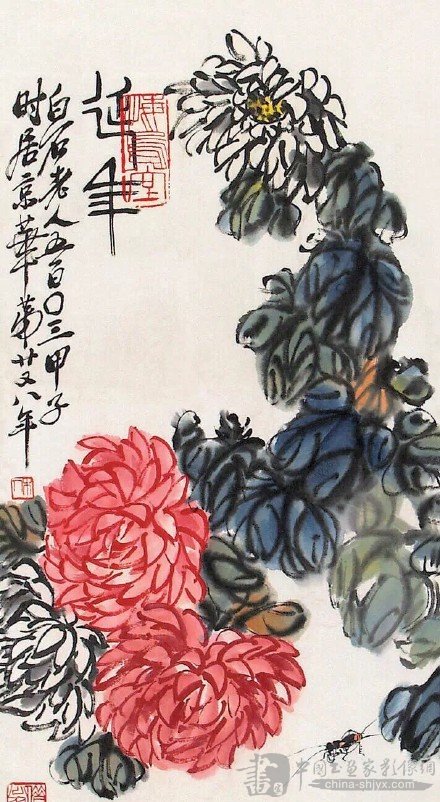 延年
白石老人五百〇三甲子
时居京華第廿又八年
畫
中國书画家影像網
www.china-shjyx.com